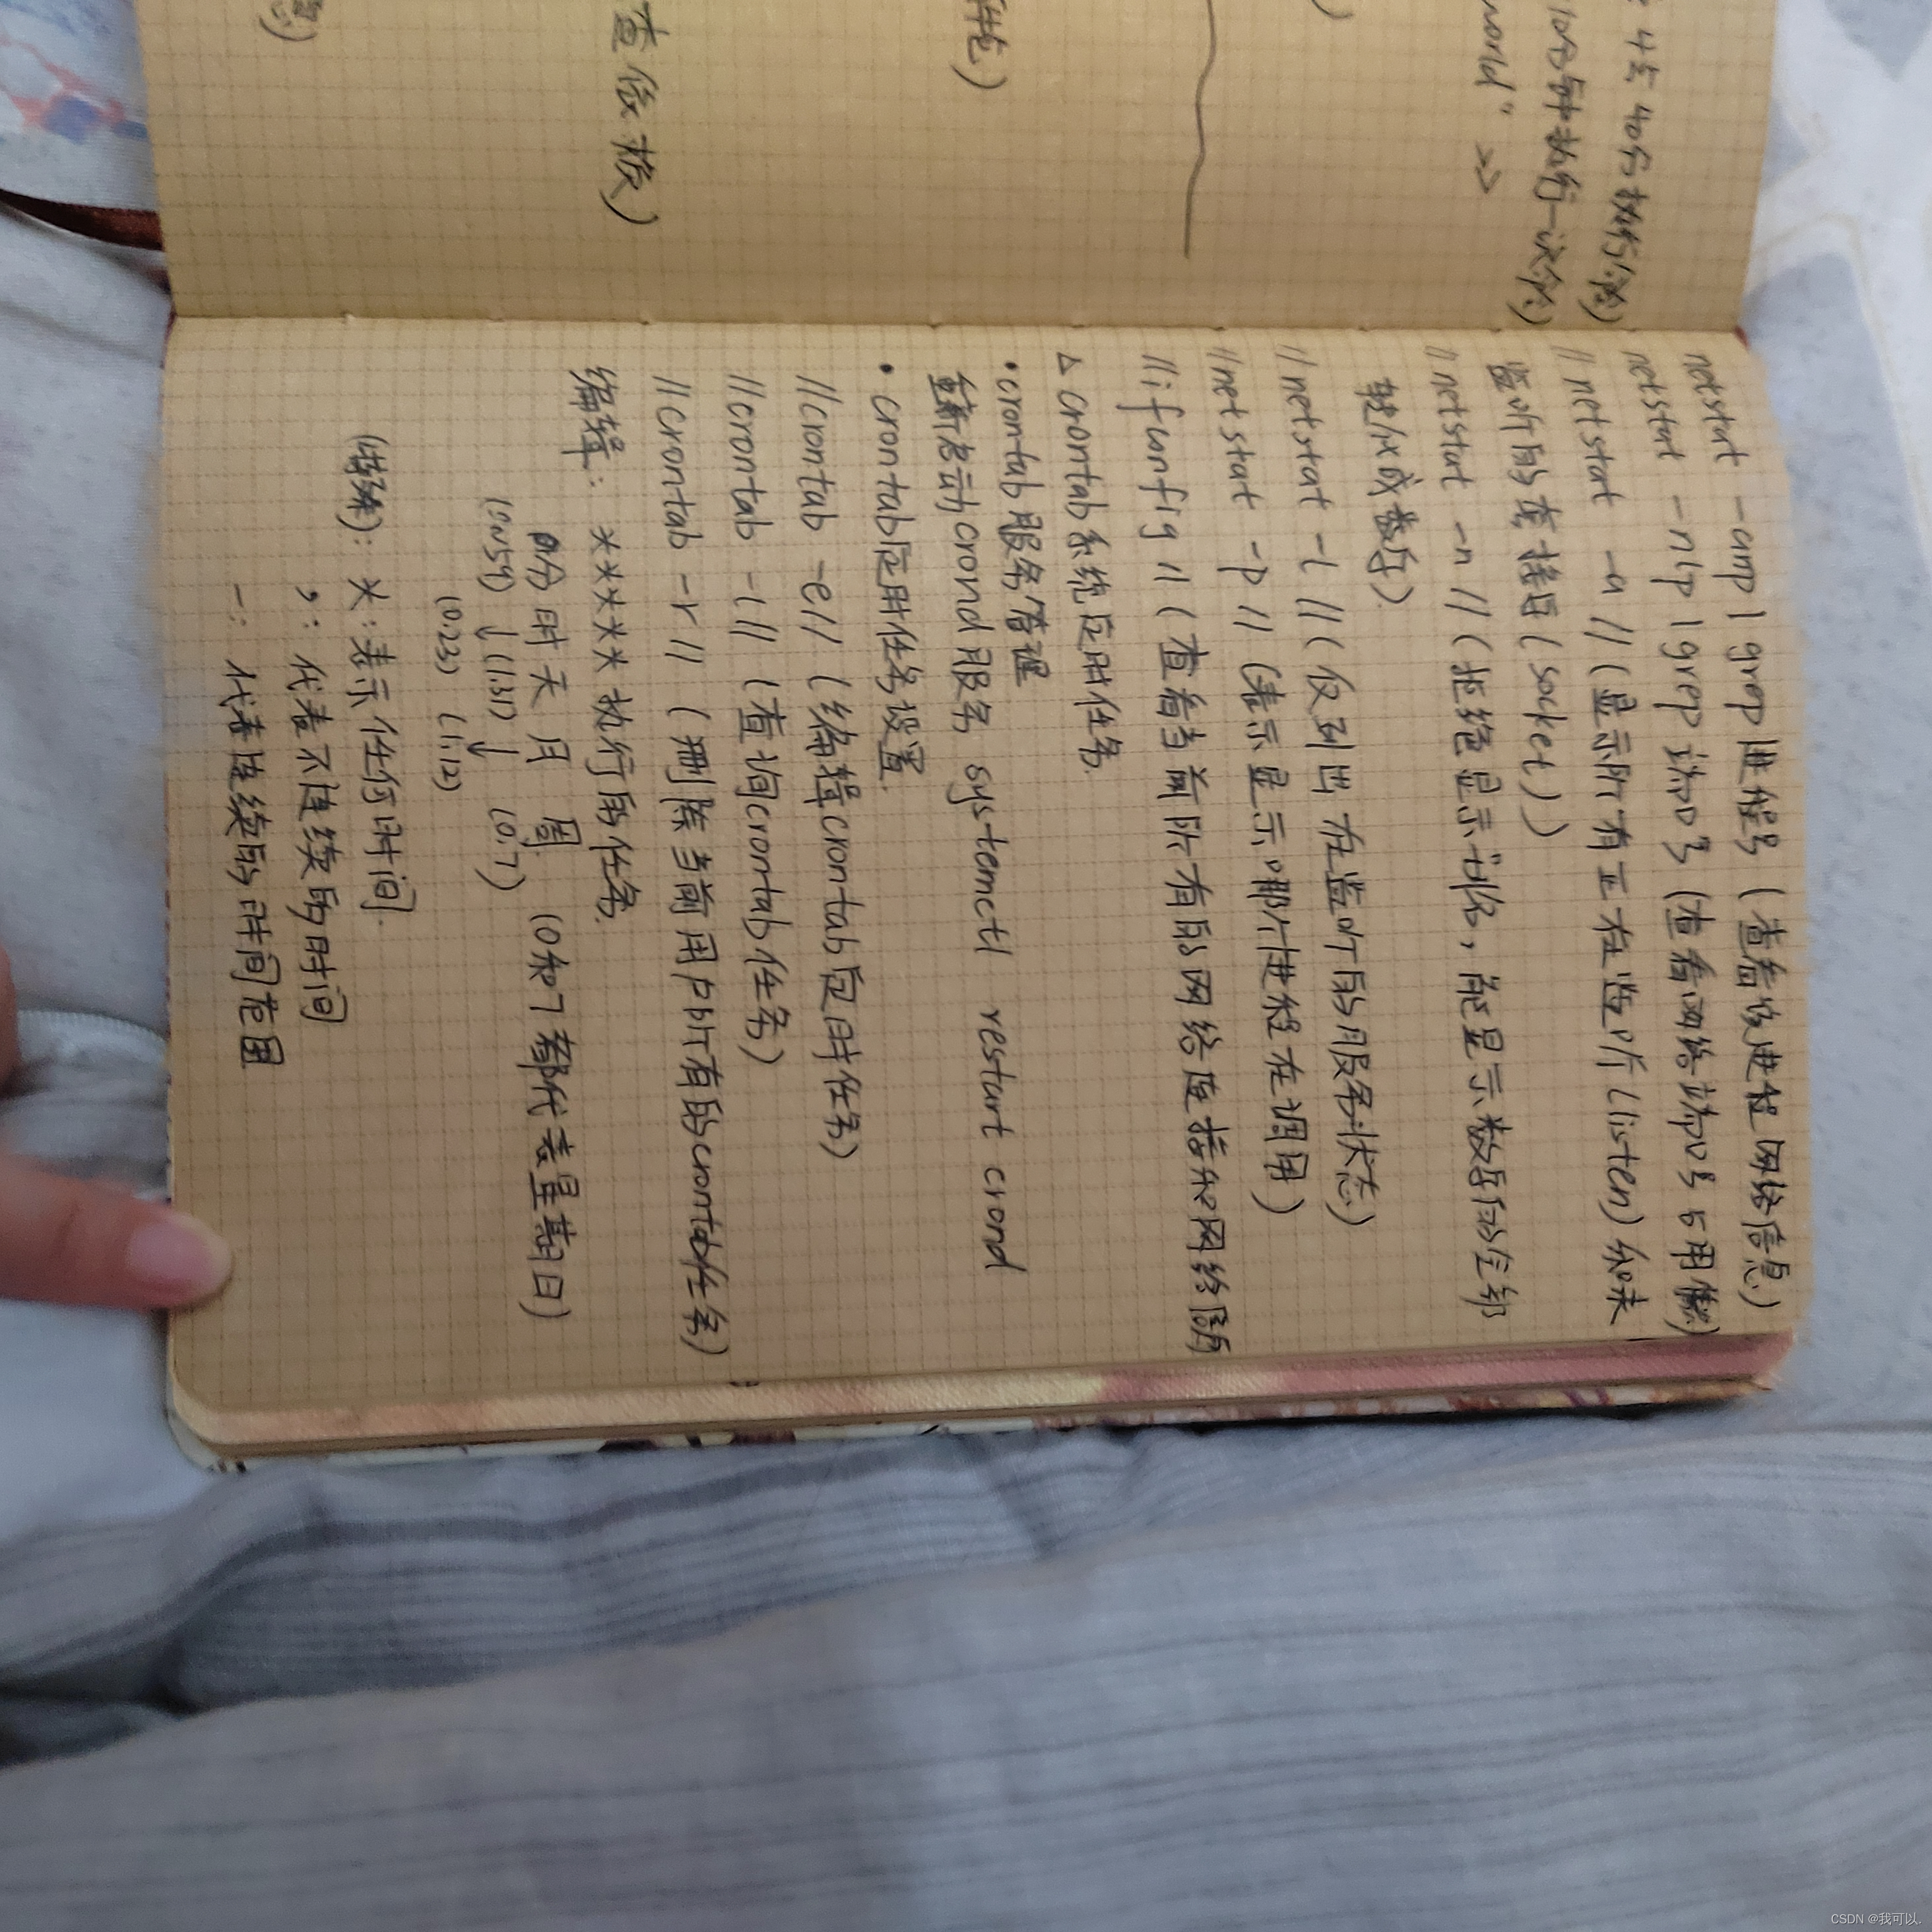 4点40分执行命令)
10分钟执行一次命令)
world" >>
查依赖)
netstat -anp | grep 进程号 (查看该进程网络信息)
netstat -nlp | grep 端口号 (查看网络端口号占用情况)
// netstat -a // (显示所有正在监听(listen)和未
监听的套接字(socket))
// netstat -n // (拒绝显示别名,能显示数字的全部
转化成数字)
// netstat -l // (仅列出在监听的服务状态)
// netstat -p // (表示显示哪个进程在调用)
// ifunfig // (查看当前所有的网络连接和网络
△ crontab系统定时任务.
• crontab服务管理
重新启动crond服务 systemctl restart crond
• crontab定时任务设置.
//crontab -e// (编辑crontab定时任务)
//crontab -l// (查询crontab任务)
//crontab -r // (删除当前用户所有的crontab任务)
编辑: * * * * * 执行的任务.
分 时 天 月 周 (0和7都代表星期日)
(0~59) ↓ (1.31) ↓ (0.7)
(0.23) (1.12)
*: 表示任何时间.
,: 代表不连续的时间
-: 代表连续的时间范围
CSDN @我可以.